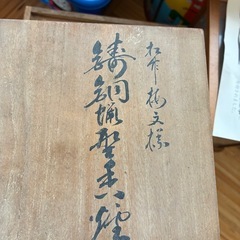 松竹梅文様
鋳銅蝋型香炉